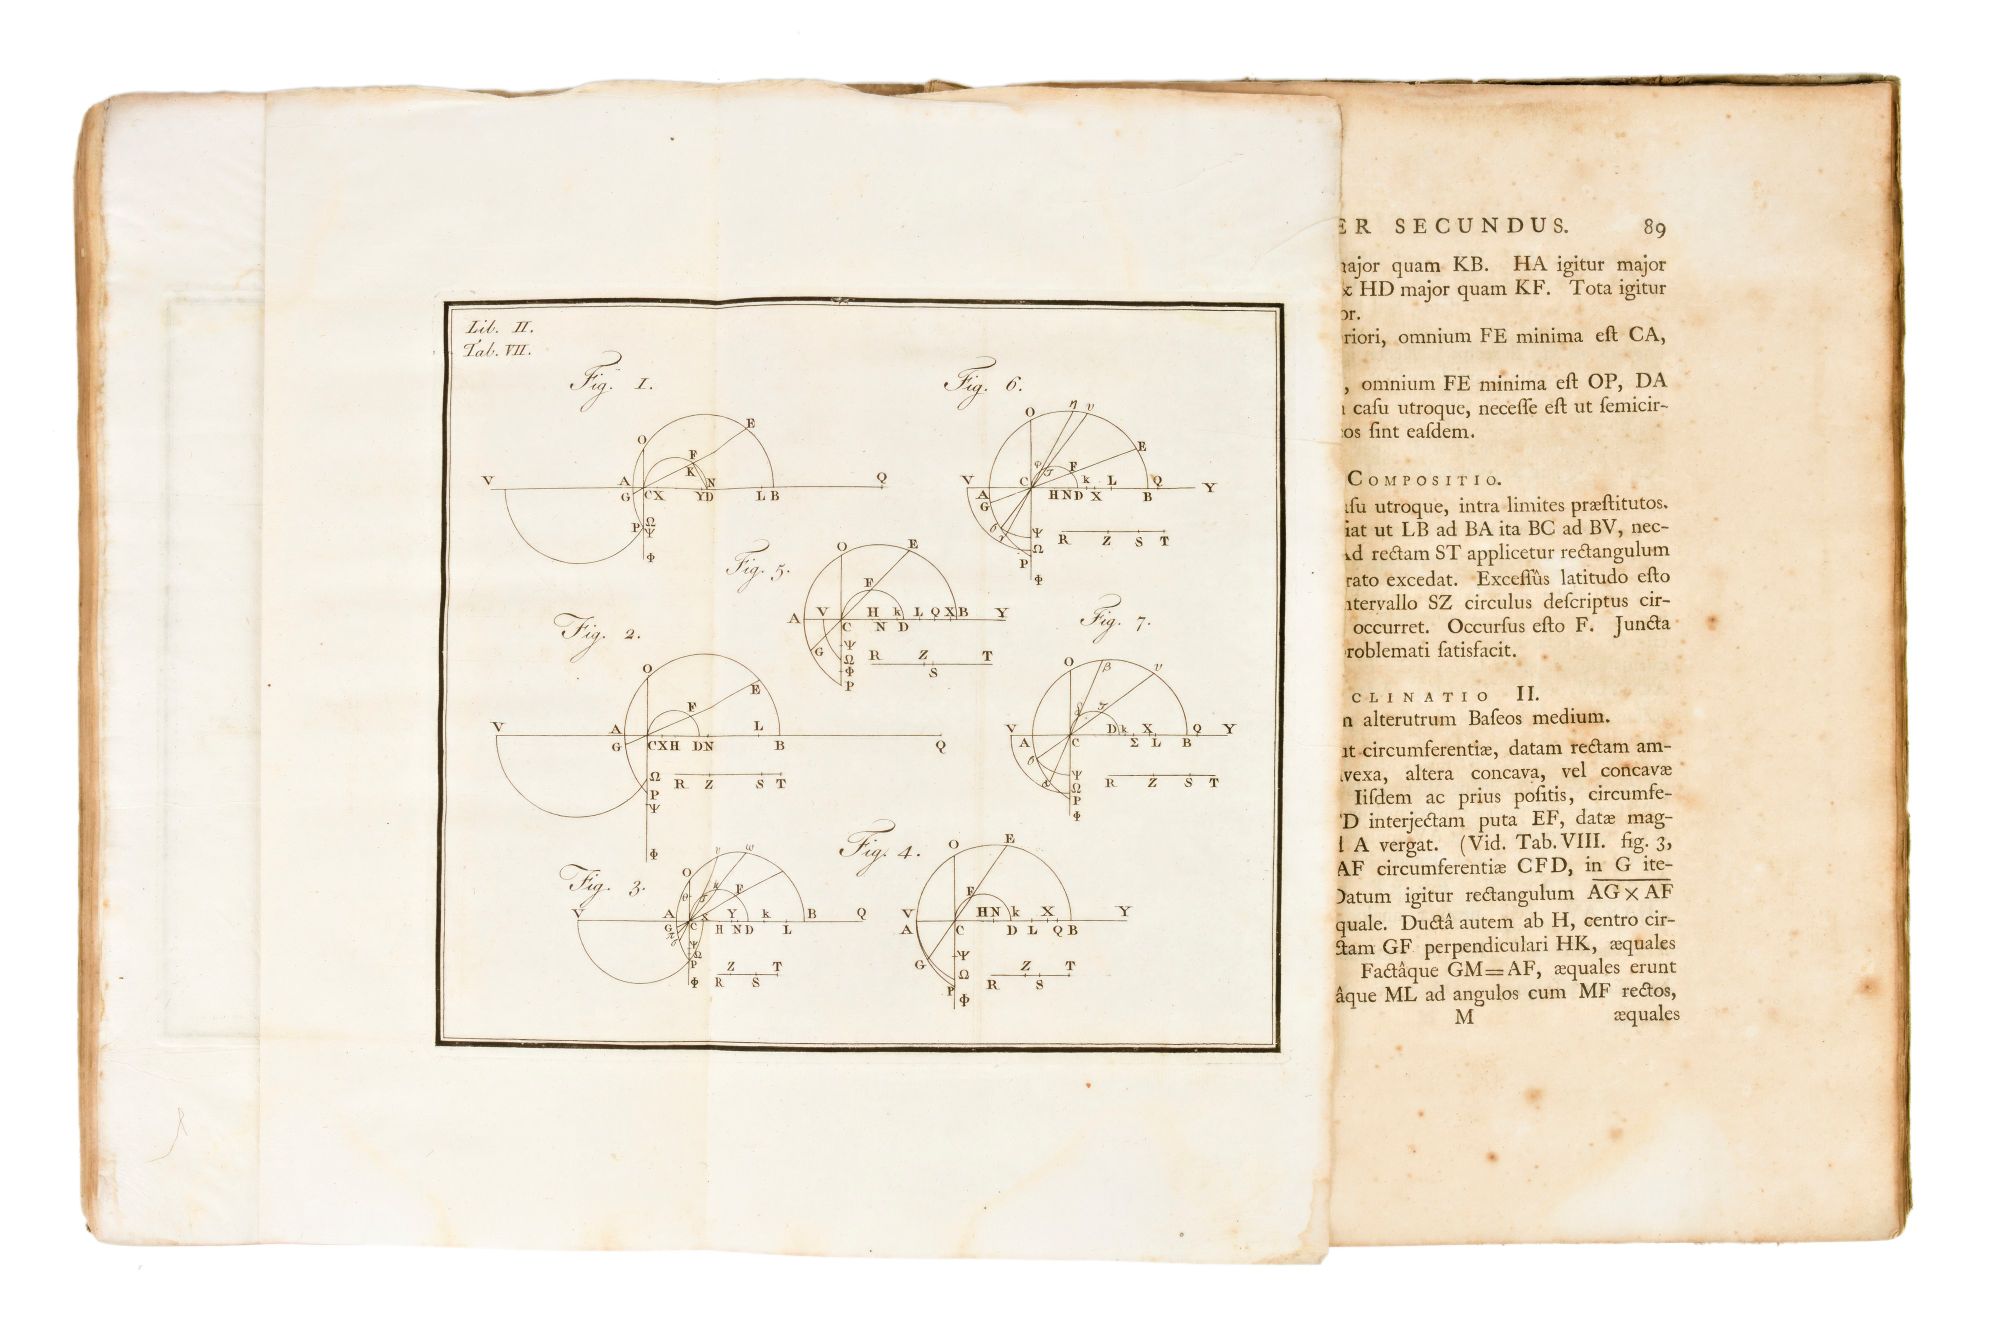 Lib. II.
Tab. VII.
Fig. 1.
O E
F
K
V A N Q
G C X Y D L B
P Ω
Ψ
Φ
Fig. 6.
O η υ
E
φ F
V C k L Q Y
A H N D X B
G
Ψ R Z S T
Ω
P
Φ
Fig. 5.
O E
F
A V H k L Q X B Y
C N D
G Ψ R Z T
Ω S
Φ
P
Fig. 2.
O E
F
V A L
G C X H D N B Q
Ω
P R Z S T
Ψ
Φ
Fig. 7.
O β υ
V D k X Q Y
A C Σ L B
Ψ
Ω R Z S T
P
Φ
Fig. 3.
υ ω
O
θ F
V A Y k B Q
G C H N D L
Ψ
Ω
P Z T
Φ R S
Fig. 4.
O E
F
V H N k X Y
A C D L Q B
G Ψ
Ω Z T
P R S
Φ
ER SECUNDUS. 89
ajor quam KB. HA igitur major
HD major quam KF. Tota igitur
or.
riori, omnium FE minima eſt CA,
, omnium FE minima eſt OP, DA
caſu utroque, neceſſe eſt ut ſemicir-
os ſint eaſdem.
COMPOSITIO.
ſu utroque, intra limites præſtitutos.
iat ut LB ad BA ita BC ad BV, nec-
d rectam ST applicetur rectangulum
rato excedat. Exceſſûs latitudo eſto
tervallo SZ circulus deſcriptus cir-
occurret. Occurſus eſto F. Juncta
roblemati ſatisfacit.
CLINATIO II.
n alterutrum Baſeos medium.
t circumferentiæ, datam rectam am-
vexa, altera concava, vel concavæ
Iiſdem ac prius poſitis, circumfe-
D interjectam puta EF, datæ mag-
A vergat. (Vid. Tab. VIII. fig. 3,
AF circumferentiæ CFD, in G ite-
Datum igitur rectangulum AG × AF
quale. Ductâ autem ab H, centro cir-
ctam GF perpendiculari HK, æquales
Factâque GM=AF, æquales erunt
âque ML ad angulos cum MF rectos,
M æquales